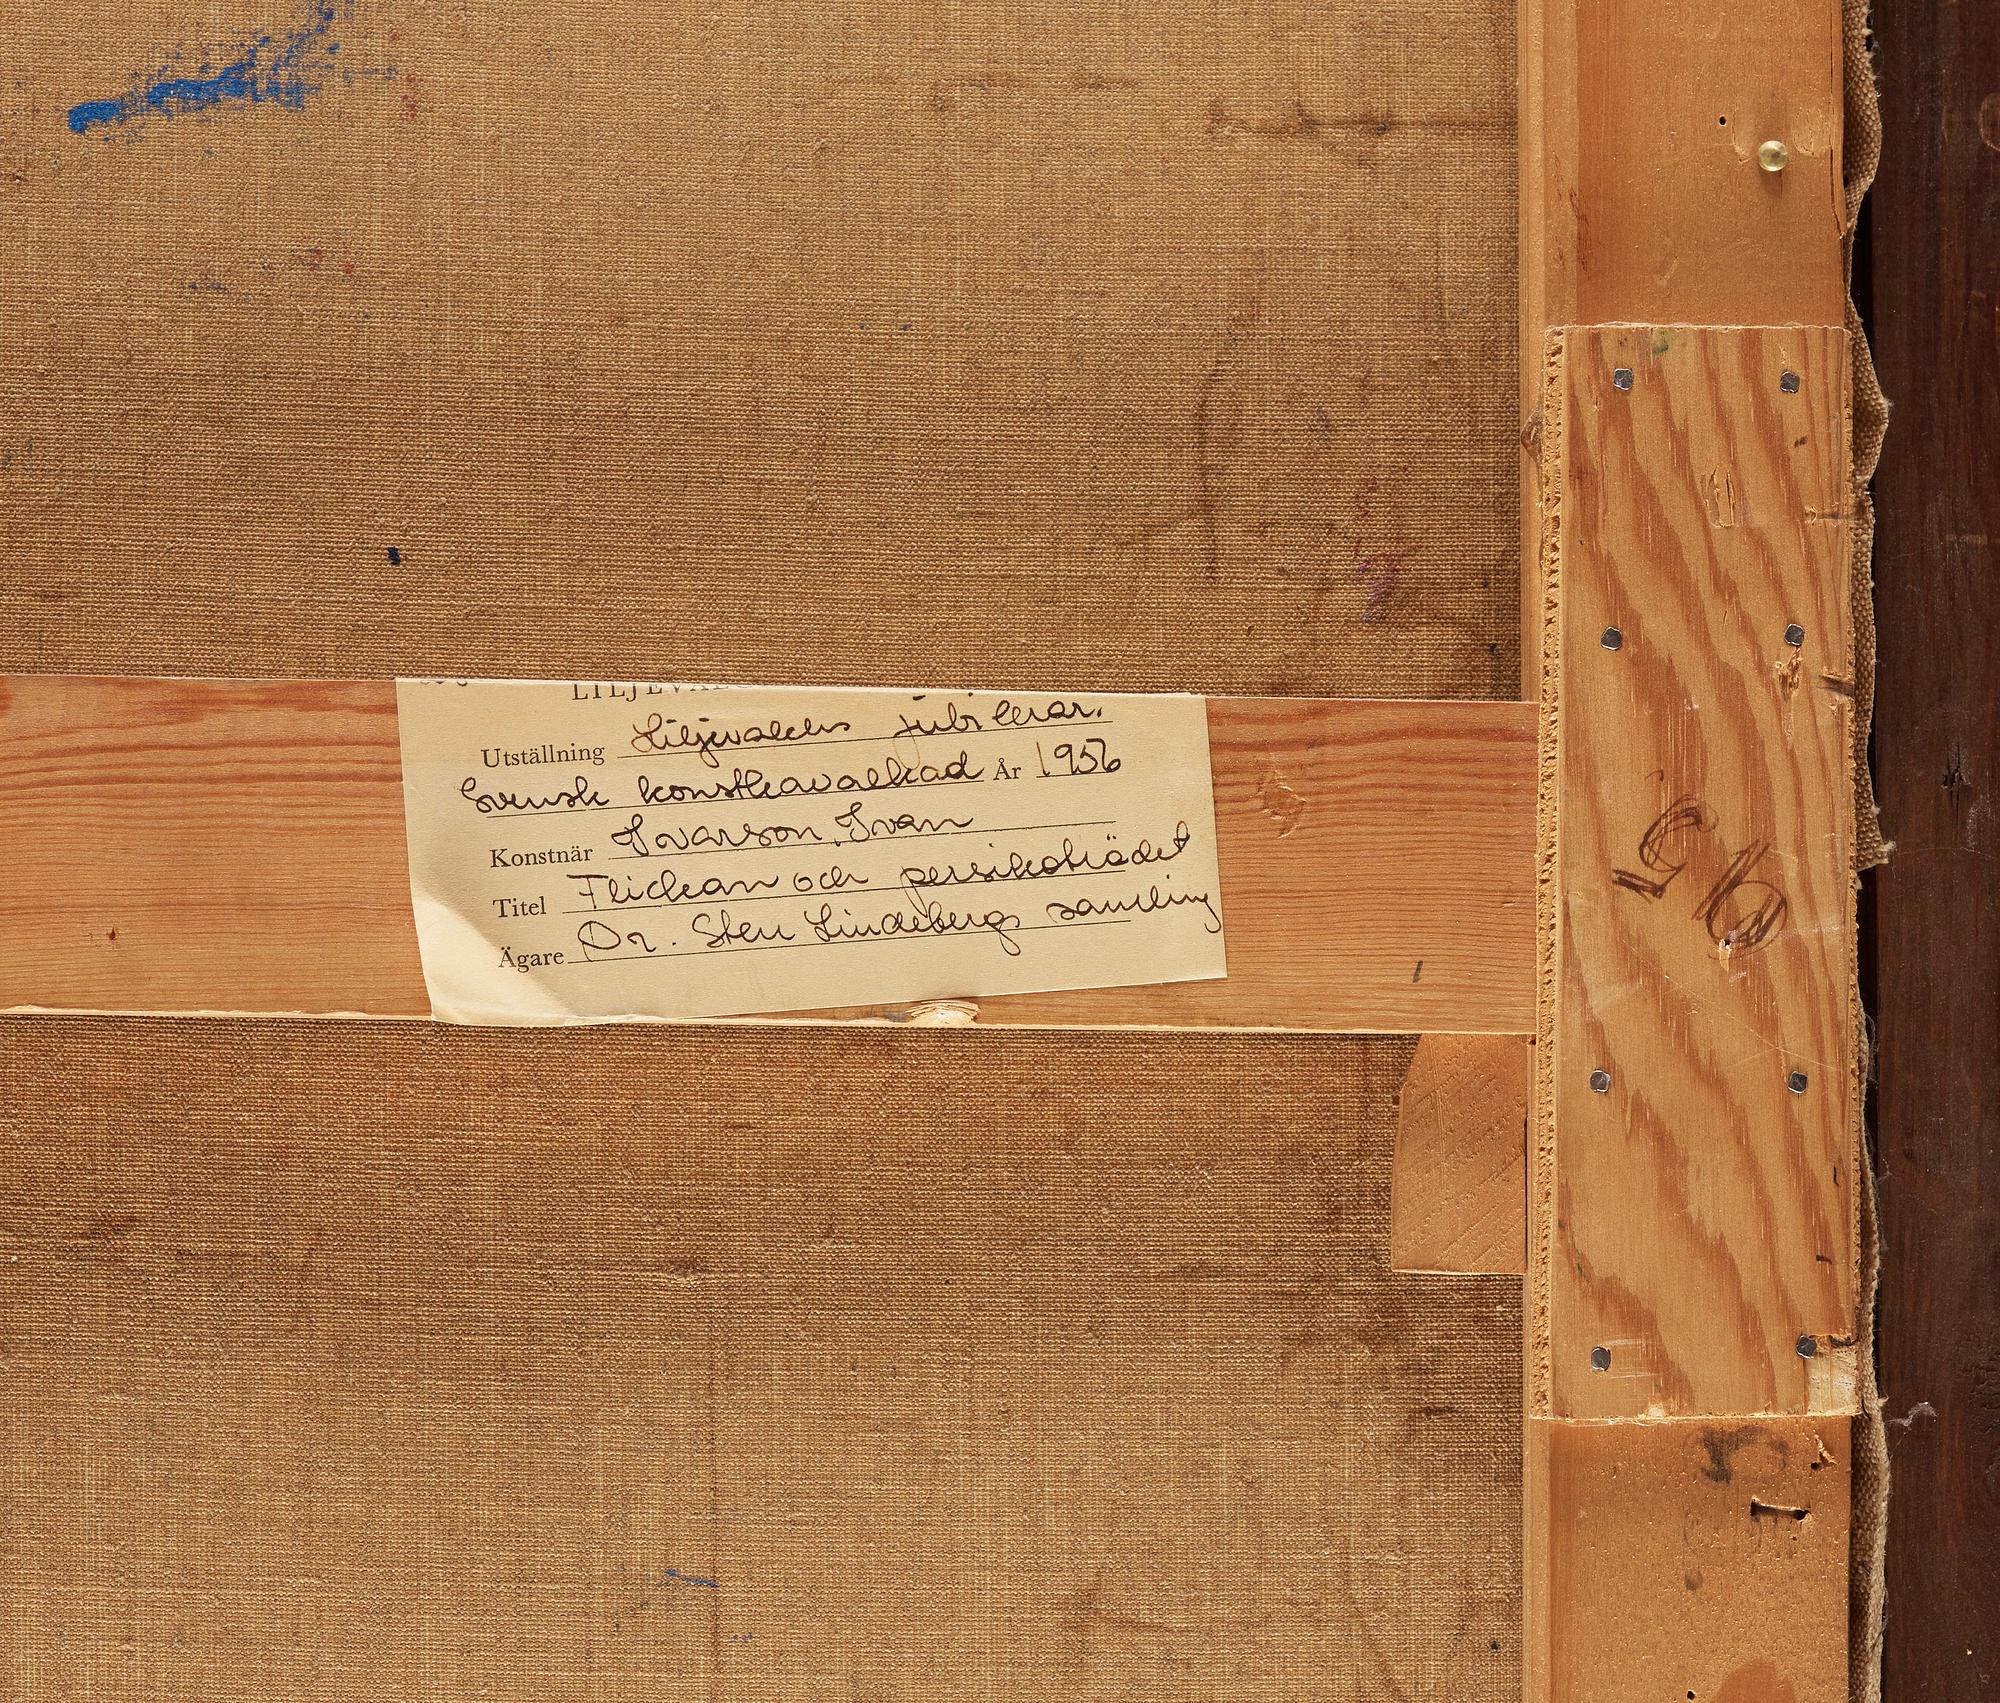 LILJEVALC
Utställning Liljevalchs jubileror.
Svensk konstkavalkad År 1956
Konstnär Ivarson, Ivan
Titel Flickan och persikoträdet
Ägare Dr. Sten Lindebergs samling
95